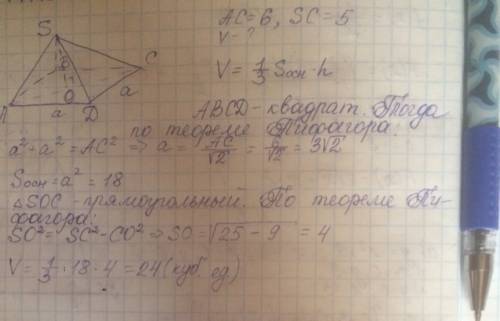 AC = 6, SC = 5
V - ?
V = 1/3 Sосн · h
S
B
C
A
O
D
a
a
ABCD - квадрат. Тогда
по теореме Пифагора:
a² + a² = AC² => a = AC/√2 = 6/√2 = 3√2
Sосн = a² = 18
△SOC - прямоугольный. По теореме Пи-
фагора:
SO² = SC² - CO² => SO = √25 - 9 = 4
V = 1/3 · 18 · 4 = 24 (куб. ед)